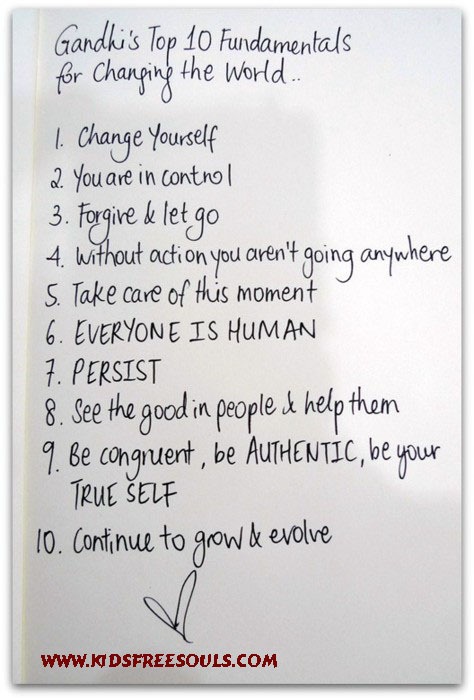 Gandhi's Top 10 Fundamentals
for Changing the World..
1. Change Yourself
2. You are in control
3. Forgive & let go
4. Without action you aren't going anywhere
5. Take care of this moment
6. EVERYONE IS HUMAN
7. PERSIST
8. See the good in people & help them
9. Be congruent, be AUTHENTIC, be your
TRUE SELF
10. Continue to grow & evolve
WWW.KIDSFREESOULS.COM